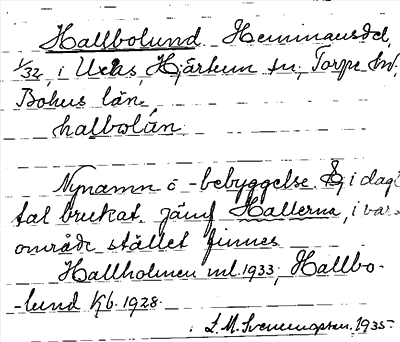 Hallbolund Hemmansdel,
1/32, i Uxås, Hjärtum sn, Torpe hd,
Bohus län,
halbolán
Nynamn o -bebyggelse. Ej i dagl
tal brukat. jämf Hallerna, i vars
område stället finnes
Hallholmen ml. 1933; Hallbo-
-lund Kb. 1928.
L. M. Svenungsson, 1935-